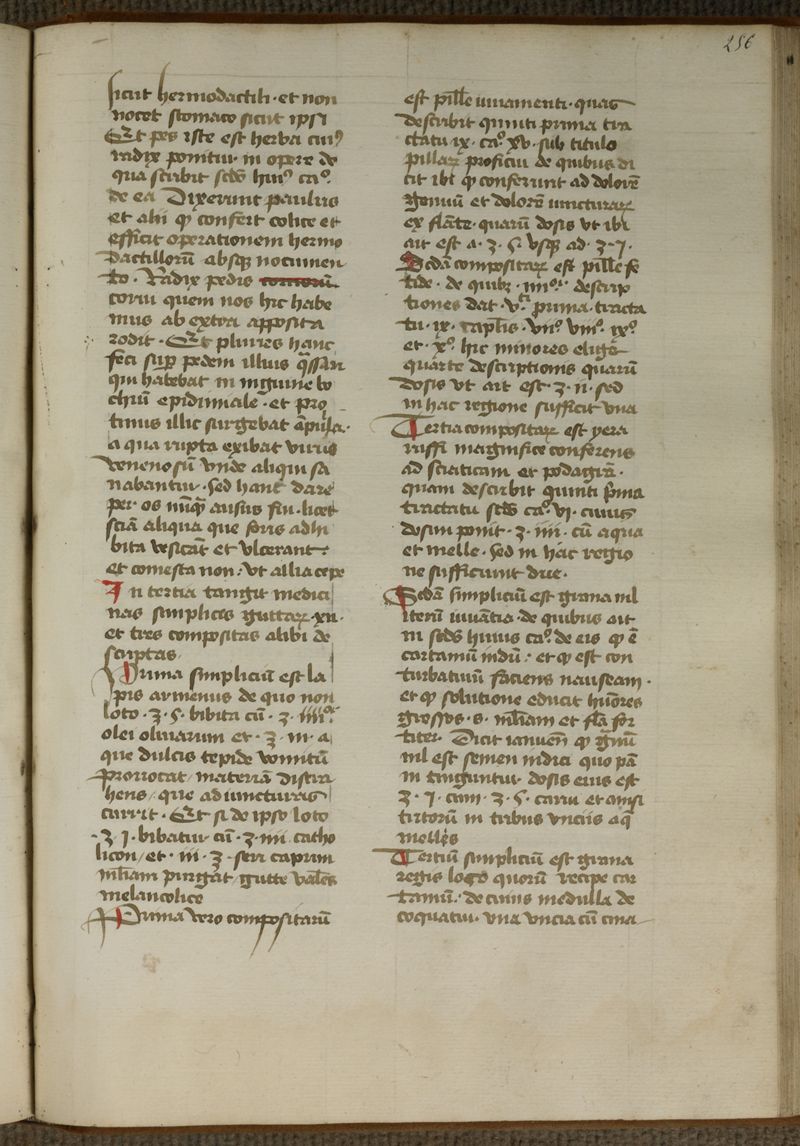 256
sicut hermodactili · et non
nocet stomaco sicut ipsi
Et pes iste est herba cuiꝯ
radix ponitur in opere de
qua scribit scđs huiꝯ caº.
de ea Dixerunt paulus
et alii ꝙ confert colice et
efficit operationem hermo
dactillorū absqꝫ nocumen
to. Radix pedis
corui quem nos hic habe
mus ab extra apposita
rodit · Et plures hanc
feci suꝑ pedem illius
qui habebat in inguine bo
ciū epidimiale · et
tinus illic surgebat
a qua rupta exibat virus
venenosū vnde aliqui sa
nabantur · sed hanc dare
per os nūqꝫ ausus fui · licet
sciā aliqua que foris adhi
bita vesicāt et vlcerant
et comesta non : vt allia cepe
In tertia tangit medici
nas simplices guttaꝝ · xii ·
et tres compositas alibi de
scriptas
Prima simpliciū est la
pis armenus de quo non
loto · ʒ · ꝭ · bibita cū · ʒ · iiiiº
olei oliuarum et · ʒ · iii · a
que dulcis tepide vomitū
prouocat / materiā distra
hens / que ad iuncturas
currit · Et si de ipso loto
· ʒ i · bibatur cū · ʒ · iiii catho
licon / et · iii · ʒ · seri caprini
mȟiam purgat / gutte valēs
melancolice
Prima vero compositarū
est pille iuuamenti · quas
describit quinti prima tra
ctatu ix · caº xv · sub titulo
pillaꝝ proficui de quibus di
cit ibi ꝙ conferunt ad dolorē
genuū et dolorē iuncturaꝝ
ex flāte · quarū dosis vt ibi
ait est a · ʒ · ꝭ · vsqꝫ ad · ʒ · i ·
Scđa compositaꝝ est pille fe
tide · de quibꝫ · iiiiº descrip
tiones dat · vⁱ prima · tracta
tu · ix · capłis · viiº viiiº ixº
et · xº · hic minores elige
quarte descriptionis quarū
dosis vt ait est · ʒ · ii · sed
in hac regione sufficit vna
Tertia compositaꝝ est yera
ruffi magnifice conferens
ad sciaticam et podagrā ·
quam describit quinti pͥma
tractatu scđo caº vi · cuius
dosim ponit · ʒ · iiii · cū aqua
et melle · sed in hac regio
ne sufficiunt due ·
Scđa simpliciū est grana nil
item iuuātia · de quibus ait
in scđo huius caº de eis ꝙ ē
cartamū indū : et ꝙ est con
turbatiuū faciens nauseam ·
et ꝙ solutione educit huōres
grossos · s · mȟiam et fłā for
titer · Dicit ianuen̄ ꝙ gᵃnū
nil est semen indici quo pā
ni tinguntur dosis eius est
ʒ · i · cum · ʒ · ꝭ · carui et
in tribus vnciis aq̄
melles
Tertiū simpliciū est grana
regis loco quorū recipe car
tamū : de cuius medulla de
coquatur · vna vncia cū